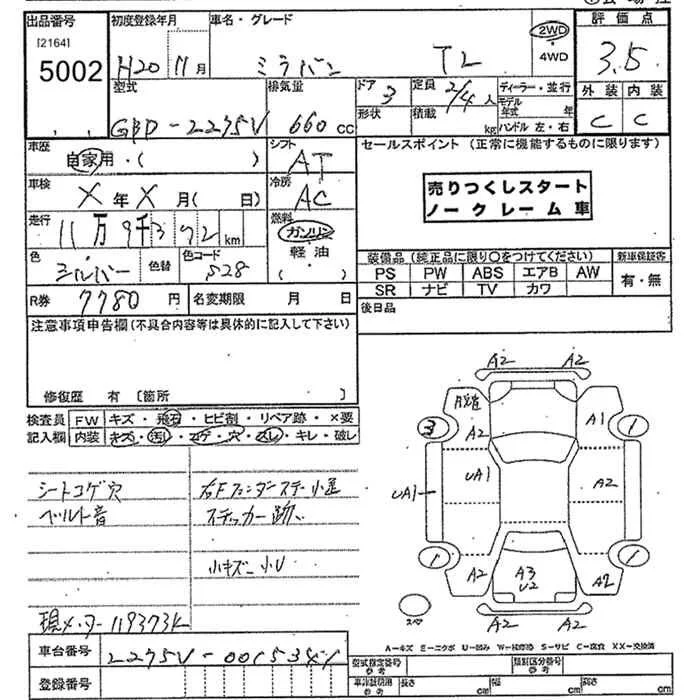 出品番号
[2164]
5002
初度登録年月
H20 11月
車名・グレード
ミラバン TL
2WD
・
4WD
評価点
3.5
外装 内装
C C
型式
GBD-L275V
排気量
660 cc
ドア
3
形状
定員
2/4人
積載
kg
ディーラー・並行
モデル年式 年
ハンドル 左・右
車歴
自家用・( )
シフト
AT
車検
X年X月( 日)
冷房
AC
走行
11万9千372km
燃料
ガソリン
軽油
( )
色
シルバー
色替
色コード
S28
R券 7780円
名変期限 月 日
セールスポイント (正常に機能するものに限ります)
売りつくしスタート
ノークレーム車
装備品 (純正品に限り○をつけてください)
新車保証書
PS PW ABS エアB AW
SR ナビ TV カワ
有・無
後日品
注意事項申告欄(不具合内容等は具体的に記入して下さい)
修復歴 有 [箇所 ]
検査員
記入欄
FW キズ・飛石・ヒビ割・リペア跡・×要
内装 キズ・汚レ・コゲ・穴・スレ・キレ・破レ
シートコゲ穴
ベルト音
右Fフェンダーステー小歪
ステッカー跡
小キズ 小U
現メーター119373K
車台番号 L275V-0015341
登録番号
A2 A2
A2
3
A1
1
UA1
UA1
A2
1
A2
A3
U2
A2
1
A2 A2
スペア
A-キズ E-エクボ U-凹み W-補修跡 S-サビ C-腐食 XX-交換済
型式指定番号
(参考)
類別区分番号
(参考)
(参考)
長さ cm
幅 cm
高さ cm